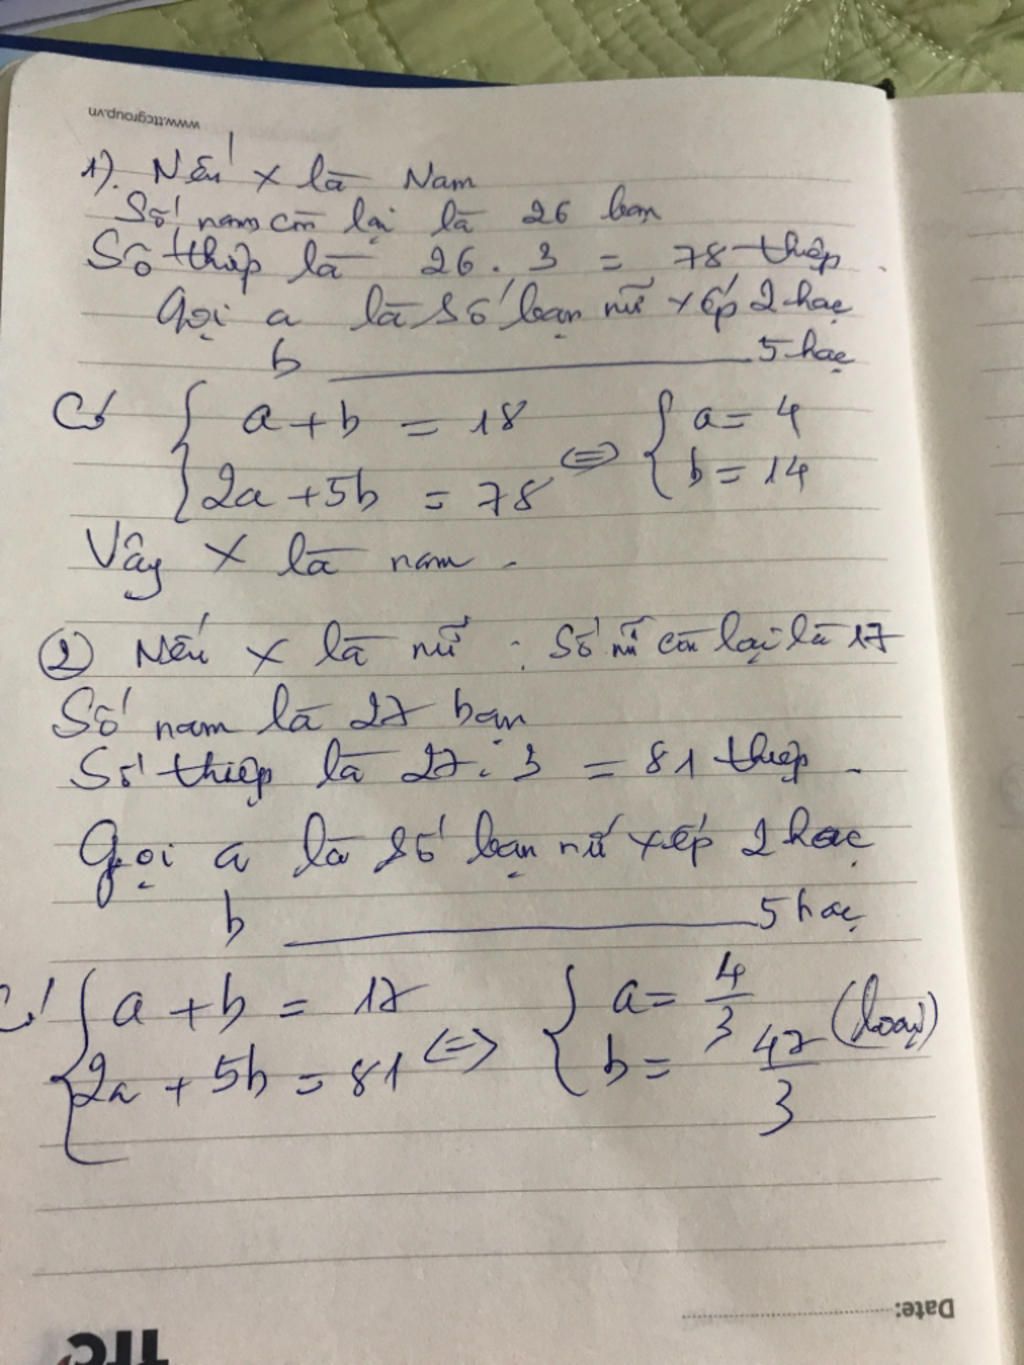 www.ttcgroup.vn
1). Nếu x là Nam
Số nam còn lại là 26 bạn
Số thiệp là 26 . 3 = 78 thiệp.
Gọi a là số bạn nữ xếp 2 hạc
b ———— 5 hạc
Có { a + b = 18 <=> { a = 4
{ 2a + 5b = 78 { b = 14
Vậy X là nam.
② Nếu x là nữ : Số nữ còn lại là 17
Số nam là 27 bạn
Số thiệp là 27. 3 = 81 thiệp.
Gọi a là số bạn nữ xếp 2 hạc
b ———— 5 hạc
Có { a + b = 17 <=> { a = 4/3 (loại)
{ 2a + 5b = 81 { b = 47/3
Date:
TTC